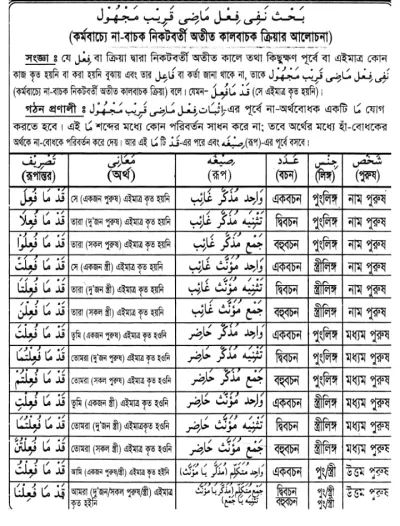 بَحْث نَفِى فِعْل مَاضِى قَرِيْب مَجْهُوْل
(কর্মবাচ্যে না-বাচক নিকটবর্তী অতীত কালবাচক ক্রিয়ার আলোচনা)
সংজ্ঞা ঃ যে فِعْل বা ক্রিয়া দ্বারা নিকটবর্তী অতীত কালে তথা কিছুক্ষণ পূর্বে বা এইমাত্র কোন
কাজ কৃত হয়নি বা করা হয়নি বুঝায় এবং তার فَاعِل বা কর্তা জানা থাকে না, তাকে نَفِى فِعْل مَاضِى قَرِيْب مَجْهُوْل
(কর্মবাচ্যে না-বাচক নিকটবর্তী অতীত কালবাচক ক্রিয়া) বলে। যেমন– قَدْ مَا فُعِلَ (সে এইমাত্র কৃত হয়নি)।
গঠন প্রণালী ঃ اِثْبَات فِعْل مَاضِى قَرِيْب مَجْهُوْل-এর পূর্বে না-অর্থবোধক একটি مَا যোগ
করতে হবে। এই مَا শব্দের মধ্যে কোন পরিবর্তন সাধন করে না; তবে অর্থের মধ্যে হাঁ-বোধকের
অর্থকে না-বোধকে পরিবর্তন করে দেয়। আর এই مَا টি قَدْ-এর পরে এবং صِيْغَه (রূপ)-এর পূর্বে বসবে।
تَصْرِيْف (রূপান্তর) مَعَانِى (অর্থ) صِيْغَه (রূপ) عَدَد (বচন) جِنْس (লিঙ্গ) شَخْص (পুরুষ)
قَدْ مَا فُعِلَ সে (একজন পুরুষ) এইমাত্র কৃত হয়নি وَاحِد مُذَكَّر غَائِب একবচন পুংলিঙ্গ নাম পুরুষ
قَدْ مَا فُعِلَا তারা (দু'জন পুরুষ) এইমাত্র কৃত হয়নি تَثْنِيَه مُذَكَّر غَائِب দ্বিবচন পুংলিঙ্গ নাম পুরুষ
قَدْ مَا فُعِلُوْا তারা (সকল পুরুষ) এইমাত্র কৃত হয়নি جَمْع مُذَكَّر غَائِب বহুবচন পুংলিঙ্গ নাম পুরুষ
قَدْ مَا فُعِلَتْ সে (একজন স্ত্রী) এইমাত্র কৃত হয়নি وَاحِد مُؤَنَّث غَائِب একবচন স্ত্রীলিঙ্গ নাম পুরুষ
قَدْ مَا فُعِلَتَا তারা (দু'জন স্ত্রী) এইমাত্র কৃত হয়নি تَثْنِيَه مُؤَنَّث غَائِب দ্বিবচন স্ত্রীলিঙ্গ নাম পুরুষ
قَدْ مَا فُعِلْنَ তারা (সকল স্ত্রী) এইমাত্র কৃত হয়নি جَمْع مُؤَنَّث غَائِب বহুবচন স্ত্রীলিঙ্গ নাম পুরুষ
قَدْ مَا فُعِلْتَ তুমি (একজন পুরুষ) এইমাত্র কৃত হওনি وَاحِد مُذَكَّر حَاضِر একবচন পুংলিঙ্গ মধ্যম পুরুষ
قَدْ مَا فُعِلْتُمَا তোমরা (দু'জন পুরুষ) এইমাত্র কৃত হওনি تَثْنِيَه مُذَكَّر حَاضِر দ্বিবচন পুংলিঙ্গ মধ্যম পুরুষ
قَدْ مَا فُعِلْتُمْ তোমরা (সকল পুরুষ) এইমাত্র কৃত হওনি جَمْع مُذَكَّر حَاضِر বহুবচন পুংলিঙ্গ মধ্যম পুরুষ
قَدْ مَا فُعِلْتِ তুমি (একজন স্ত্রী) এইমাত্র কৃত হওনি وَاحِد مُؤَنَّث حَاضِر একবচন স্ত্রীলিঙ্গ মধ্যম পুরুষ
قَدْ مَا فُعِلْتُمَا তোমরা (দু'জন স্ত্রী) এইমাত্র কৃত হওনি تَثْنِيَه مُؤَنَّث حَاضِر দ্বিবচন স্ত্রীলিঙ্গ মধ্যম পুরুষ
قَدْ مَا فُعِلْتُنَّ তোমরা (সকল স্ত্রী) এইমাত্র কৃত হওনি جَمْع مُؤَنَّث حَاضِر বহুবচন স্ত্রীলিঙ্গ মধ্যম পুরুষ
قَدْ مَا فُعِلْتُ আমি (একজন পুরুষ/স্ত্রী) এইমাত্র কৃত হইনি وَاحِد مُتَكَلِّم (مُذَكَّر يَا مُؤَنَّث) একবচন পুং/স্ত্রী উত্তম পুরুষ
قَدْ مَا فُعِلْنَا আমরা (দু'জন/সকল পুরুষ/স্ত্রী) এইমাত্র কৃত হইনি جَمْع مُتَكَلِّم (مُذَكَّر يَا مُؤَنَّث) দ্বিবচন বহুবচন পুং/স্ত্রী উত্তম পুরুষ